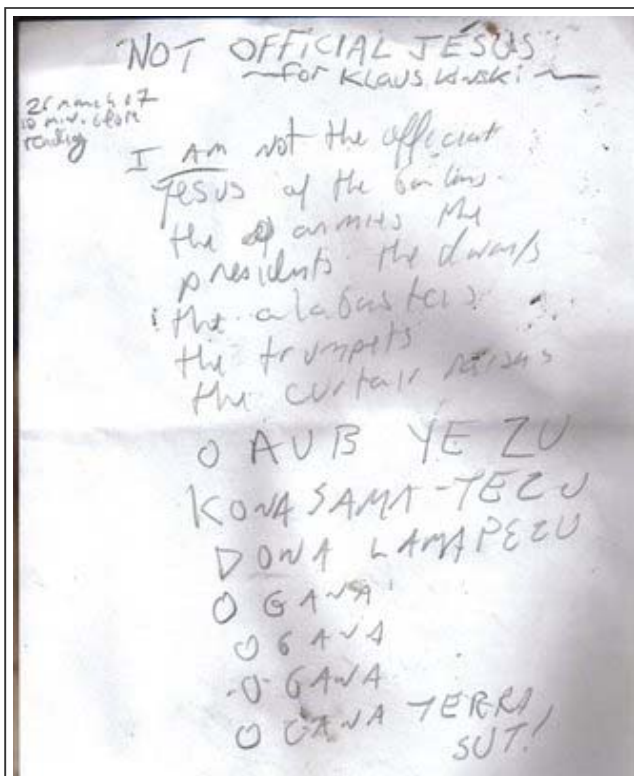 NOT OFFICIAL JESUS
~ for KLAUS KINSKI ~
26 march 07
10 min. before
reading
I AM not the official
JESUS of the
the armies the
presidents the dwarfs
the alabasters
the trumpets
the curtain raisers
O AUB YE ZU
KONA SAMA-TEZU
DONA LAMAPEZU
O GANA
O GANA
O GANA
O GANA TERRA
SUT!